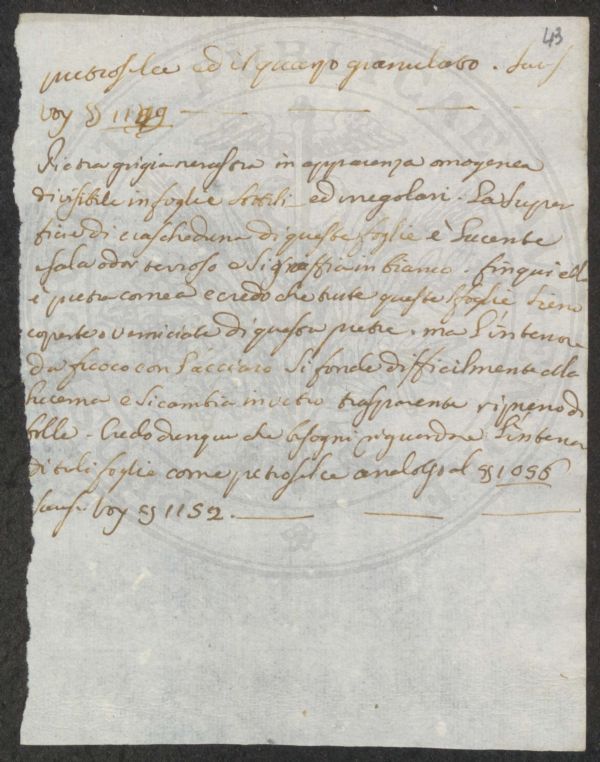 43
petroselce ed il quarzo granulato. Saus
Voy §
Pietra grigia nerastra in apparenza omogenea
divisibile in foglie sottili ed irregolari. La super
ficie di ciascheduna di queste foglie è Lucente
esala odor terroso e si graffia in bianco. fin qui ella
è pietra cornea e credo che tutte queste sfoglie sieno
coperte o verniciate di questa pietra. ma L'interiore
da fuoco con l'acciaro si fonde difficilmente alla
lucerna e si cambia in vetro trasparente ripieno di
bolle. Credo dunque che bisogni riguardare L'interior
di tali foglie come petroselce analogo al § 1056
Saus. Voy § 1152.